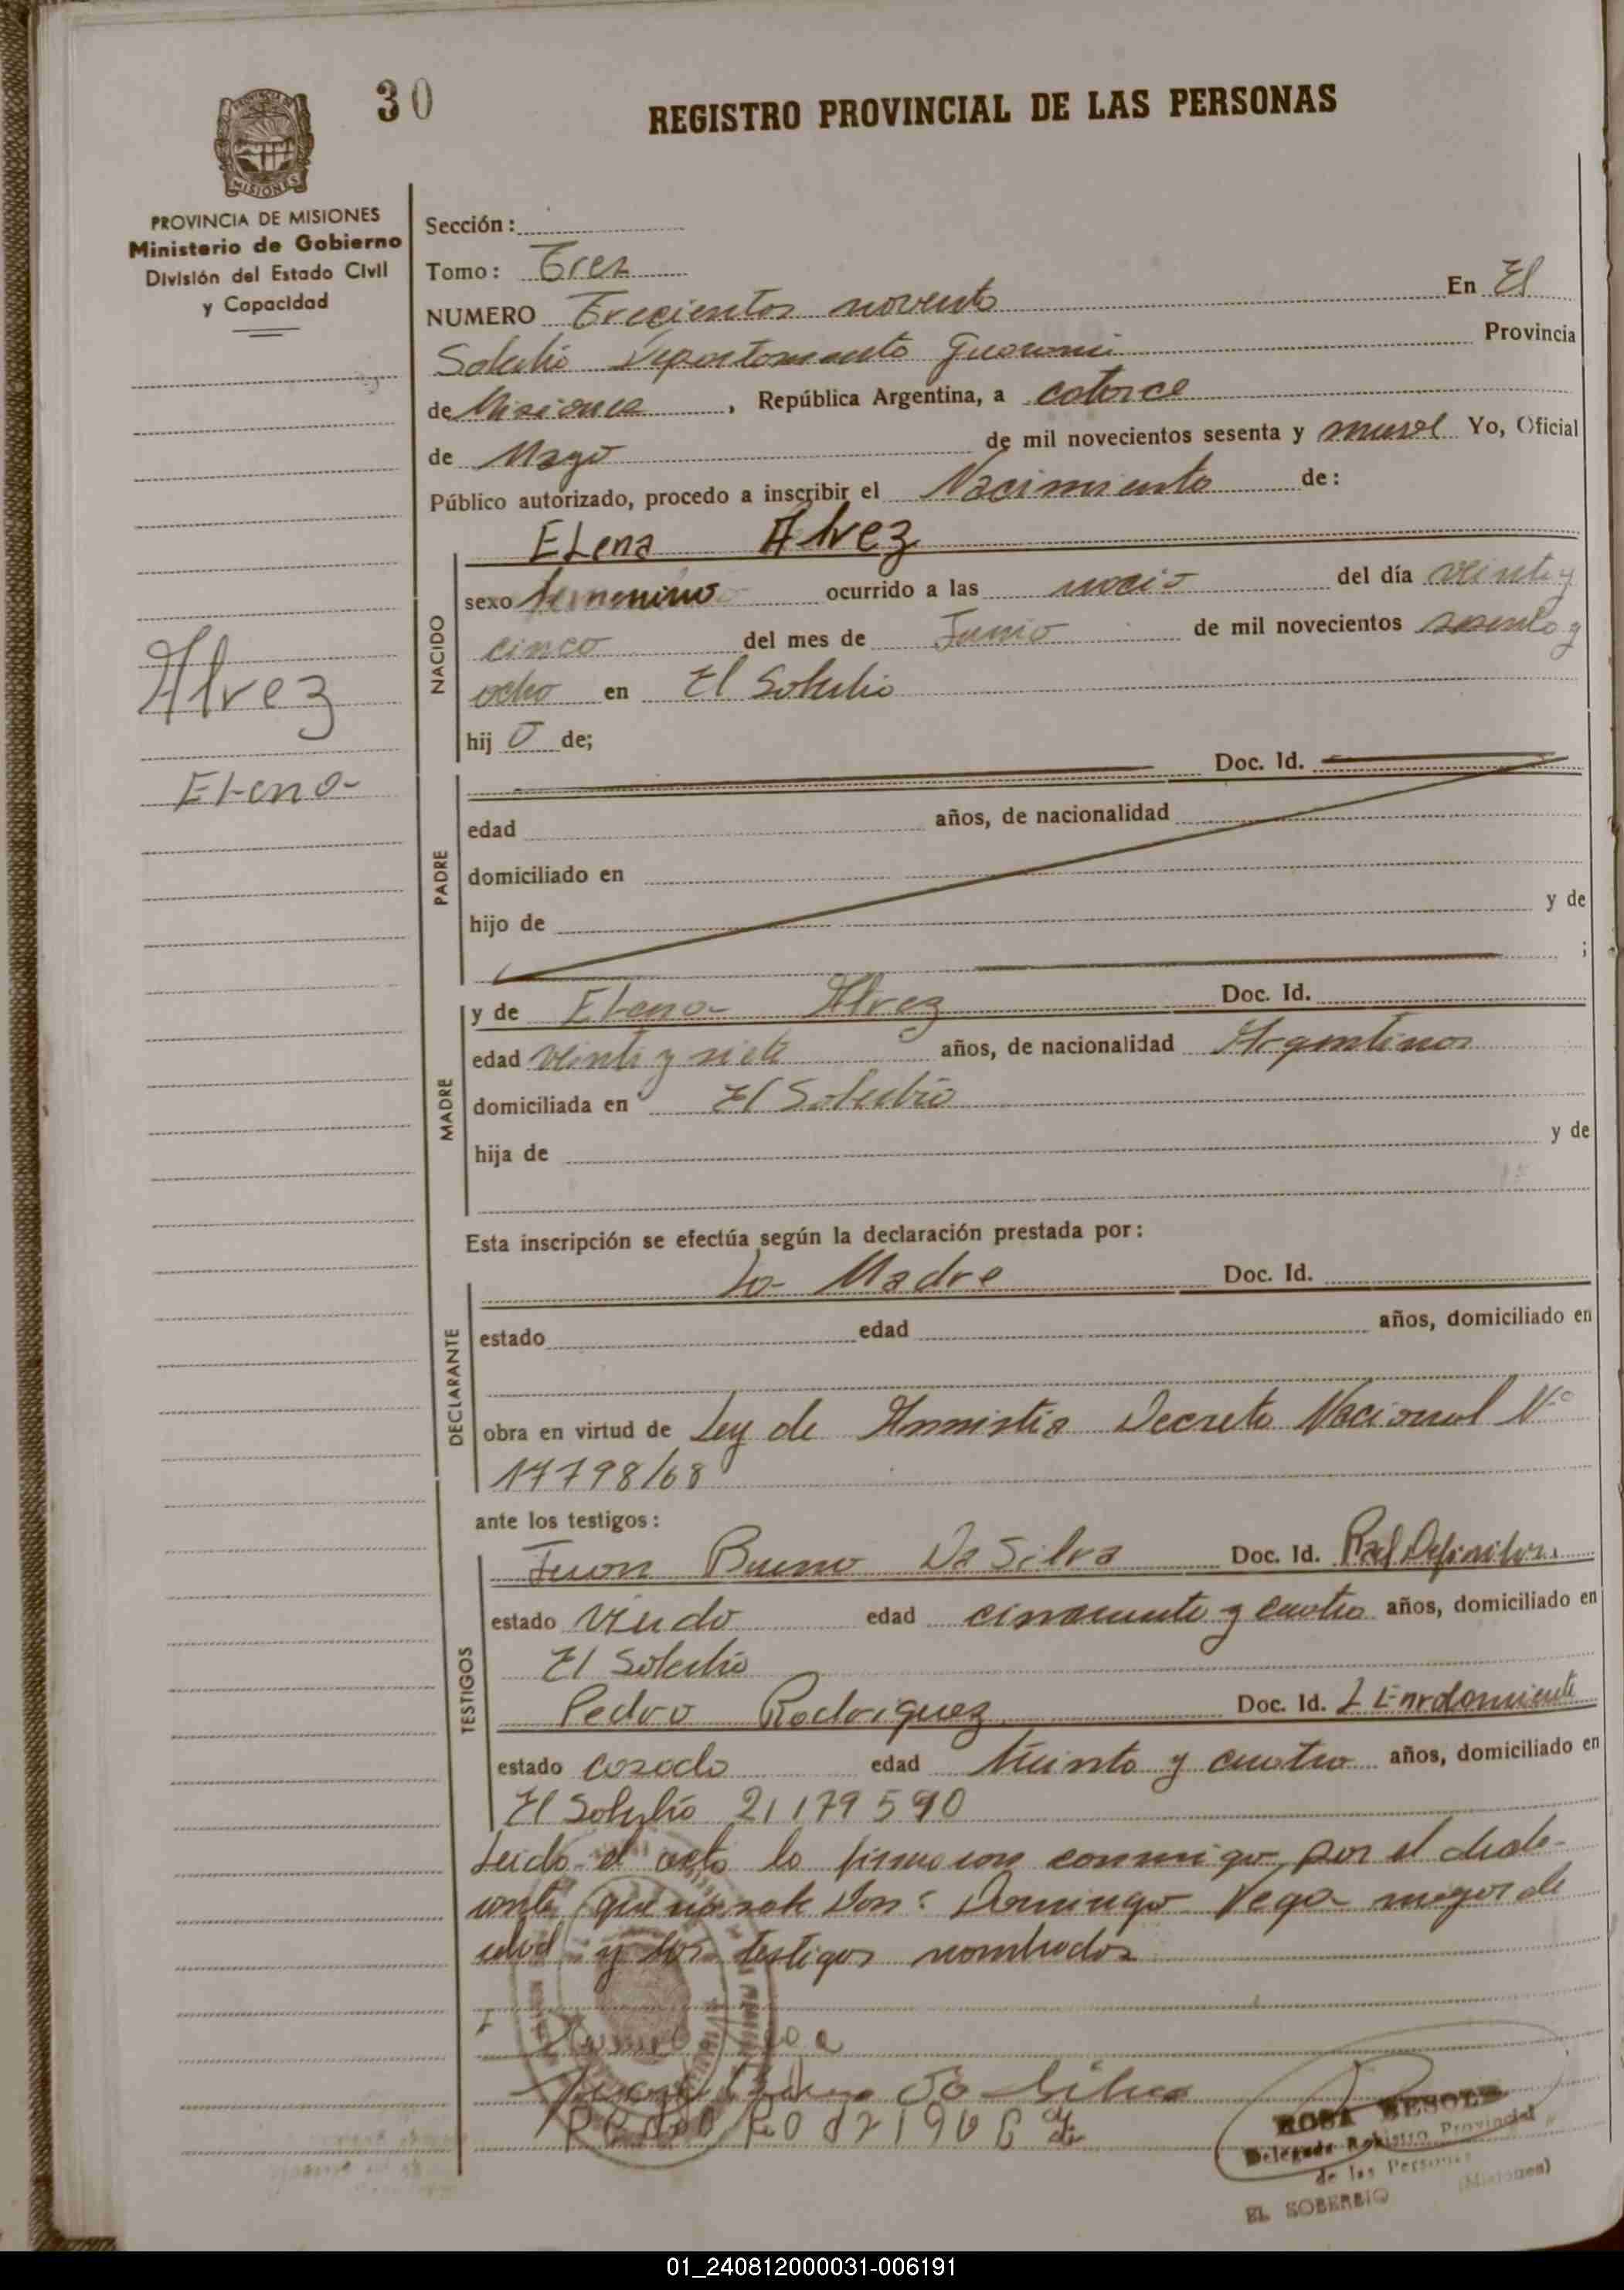 30
REGISTRO PROVINCIAL DE LAS PERSONAS
PROVINCIA DE MISIONES
Ministerio de Gobierno
División del Estado Civil
y Capacidad
Sección:
Tomo: Tres
NUMERO Trecientos noventa En El
Soberbio Departamento Guarani Provincia
de Misiones, República Argentina, a catorce
de Mayo de mil novecientos sesenta y nueve Yo, Oficial
Público autorizado, procedo a inscribir el Nacimiento de:
Elena Alvez
NACIDO
sexo femenino ocurrido a las del día veinte y
cinco del mes de Junio de mil novecientos sesenta y
ocho en El Soberbio
hij de;
Alvez
Elena
PADRE
Doc. Id.
edad años, de nacionalidad
domiciliado en
hijo de y de
;
MADRE
y de Elena Alvez Doc. Id.
edad veinte y siete años, de nacionalidad Argentina
domiciliada en El Soberbio
hija de y de
Esta inscripción se efectúa según la declaración prestada por:
DECLARANTE
La Madre Doc. Id.
estado edad años, domiciliado en
obra en virtud de Ley de Amnistia Decreto Nacional Nº
17798/68
ante los testigos:
TESTIGOS
Juan Bueno Da Silva Doc. Id.
estado viudo edad cincuenta y cuatro años, domiciliado en
El Soberbio
Pedro Rodriguez Doc. Id. L Enrolamiento
estado casado edad treinta y cuatro años, domiciliado en
El Soberbio 21179590
Leido el acta la firmaron conmigo, por el decla-
rante que no sabe Don: Domingo Vega mayor de
edad y los testigos nombrados
Da Silva
Pedro Rodriguez
ROSA
Delegada Registro Provincial
de las Personas
(Misiones)
EL SOBERBIO
01_240812000031-006191